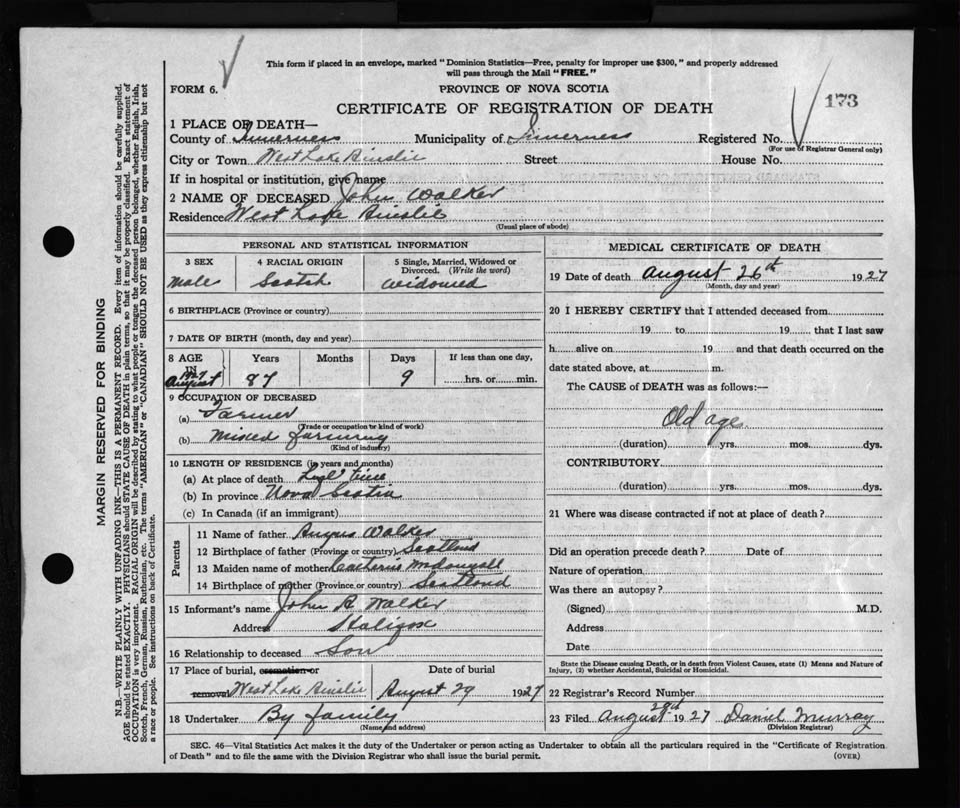 This form if placed in an envelope, marked "Dominion Statistics—Free, penalty for improper use $300," and properly addressed
will pass through the Mail "FREE."
FORM 6.
PROVINCE OF NOVA SCOTIA
173
CERTIFICATE OF REGISTRATION OF DEATH
1 PLACE OF DEATH—
County of Inverness Municipality of Inverness Registered No.
(For use of Registrar General only)
City or Town West Lake Ainslie Street House No.
If in hospital or institution, give name
2 NAME OF DECEASED John Walker
Residence West Lake Ainslie
(Usual place of abode)
PERSONAL AND STATISTICAL INFORMATION
3 SEX 4 RACIAL ORIGIN 5 Single, Married, Widowed or
Divorced. (Write the word)
Male Scotch Widowed
6 BIRTHPLACE (Province or country)
7 DATE OF BIRTH (month, day and year)
8 AGE Years Months Days If less than one day,
IN
1927
August 87 9 hrs. or min.
9 OCCUPATION OF DECEASED
(a) Farmer
(Trade or occupation or kind of work)
(b) Mixed farming
(Kind of industry)
10 LENGTH OF RESIDENCE (in years and months)
(a) At place of death Life time
(b) In province Nova Scotia
(c) In Canada (if an immigrant)
Parents
11 Name of father Angus Walker
12 Birthplace of father (Province or country) Scotland
13 Maiden name of mother Catherine McDougall
14 Birthplace of mother (Province or country) Scotland
15 Informant's name John R Walker
Address Halifax
16 Relationship to deceased Son
17 Place of burial, cremation or Date of burial
removal West Lake Ainslie August 29 1927
18 Undertaker By family
(Name and address)
MEDICAL CERTIFICATE OF DEATH
19 Date of death August 26th 1927
(Month, day and year)
20 I HEREBY CERTIFY that I attended deceased from
19 to 19 that I last saw
h alive on 19 and that death occurred on the
date stated above, at m.
The CAUSE of DEATH was as follows:—
Old age
(duration) yrs. mos. dys.
CONTRIBUTORY
(duration) yrs. mos. dys.
21 Where was disease contracted if not at place of death?
Did an operation precede death? Date of
Nature of operation
Was there an autopsy?
(Signed) M.D.
Address
Date
State the Disease causing Death, or in death from Violent Causes, state (1) Means and Nature of
Injury, (2) whether Accidental, Suicidal or Homicidal.
22 Registrar's Record Number
23 Filed August 29th 1927 Daniel Murray
(Division Registrar)
SEC. 46—Vital Statistics Act makes it the duty of the Undertaker or person acting as Undertaker to obtain all the particulars required in the "Certificate of Registration
of Death" and to file the same with the Division Registrar who shall issue the burial permit. (OVER)
MARGIN RESERVED FOR BINDING
N.B.—WRITE PLAINLY WITH UNFADING INK—THIS IS A PERMANENT RECORD. Every item of information should be carefully supplied.
AGE should be stated EXACTLY. PHYSICIANS should STATE CAUSE OF DEATH in plain terms, so that it may be properly classified. Exact statement of
OCCUPATION is very important. RACIAL ORIGIN will be described by stating to what people or tongue the deceased person belonged, whether English, Irish,
Scotch, French, German, Russian, Ruthenian, etc. The terms "AMERICAN" or "CANADIAN" SHOULD NOT BE USED as they express citizenship but not
a race or people. See instructions on back of Certificate.